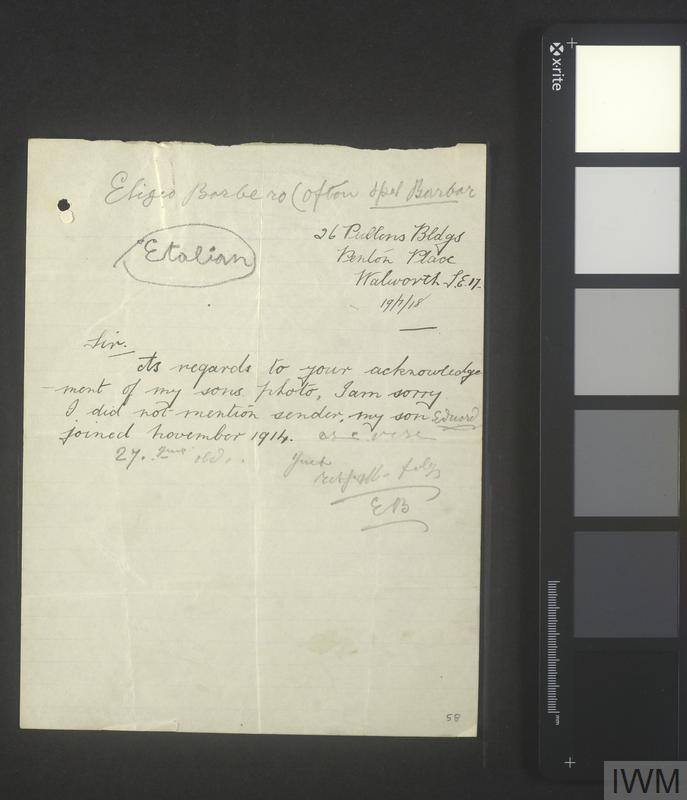 Eligio Barbero (often spel Barbar
"Etalian
26 Pullens Bldgs
Penton Place
Walworth S.E.17.
19/7/18
Sir.
As regards to your acknowledge
-ment of my sons photo, I am sorry
I did not mention sender, my son Edward
joined november 1914.
27. old.
EB
58
x-rite
mm
IWM